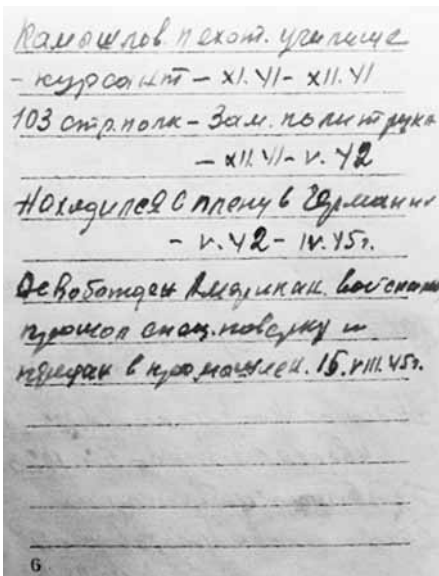 Камышлов. пехот. училище
- курсант - XI.41 - XII.41
103 стр. полк - Зам. политрука
- XII.41 - V.42
Находился в плену в Германии
- V.42 - IV.45г.
Освобожден Американ. войсками
прошел спец. поверку и
передан в промышлен. 15.VIII.45г.
6